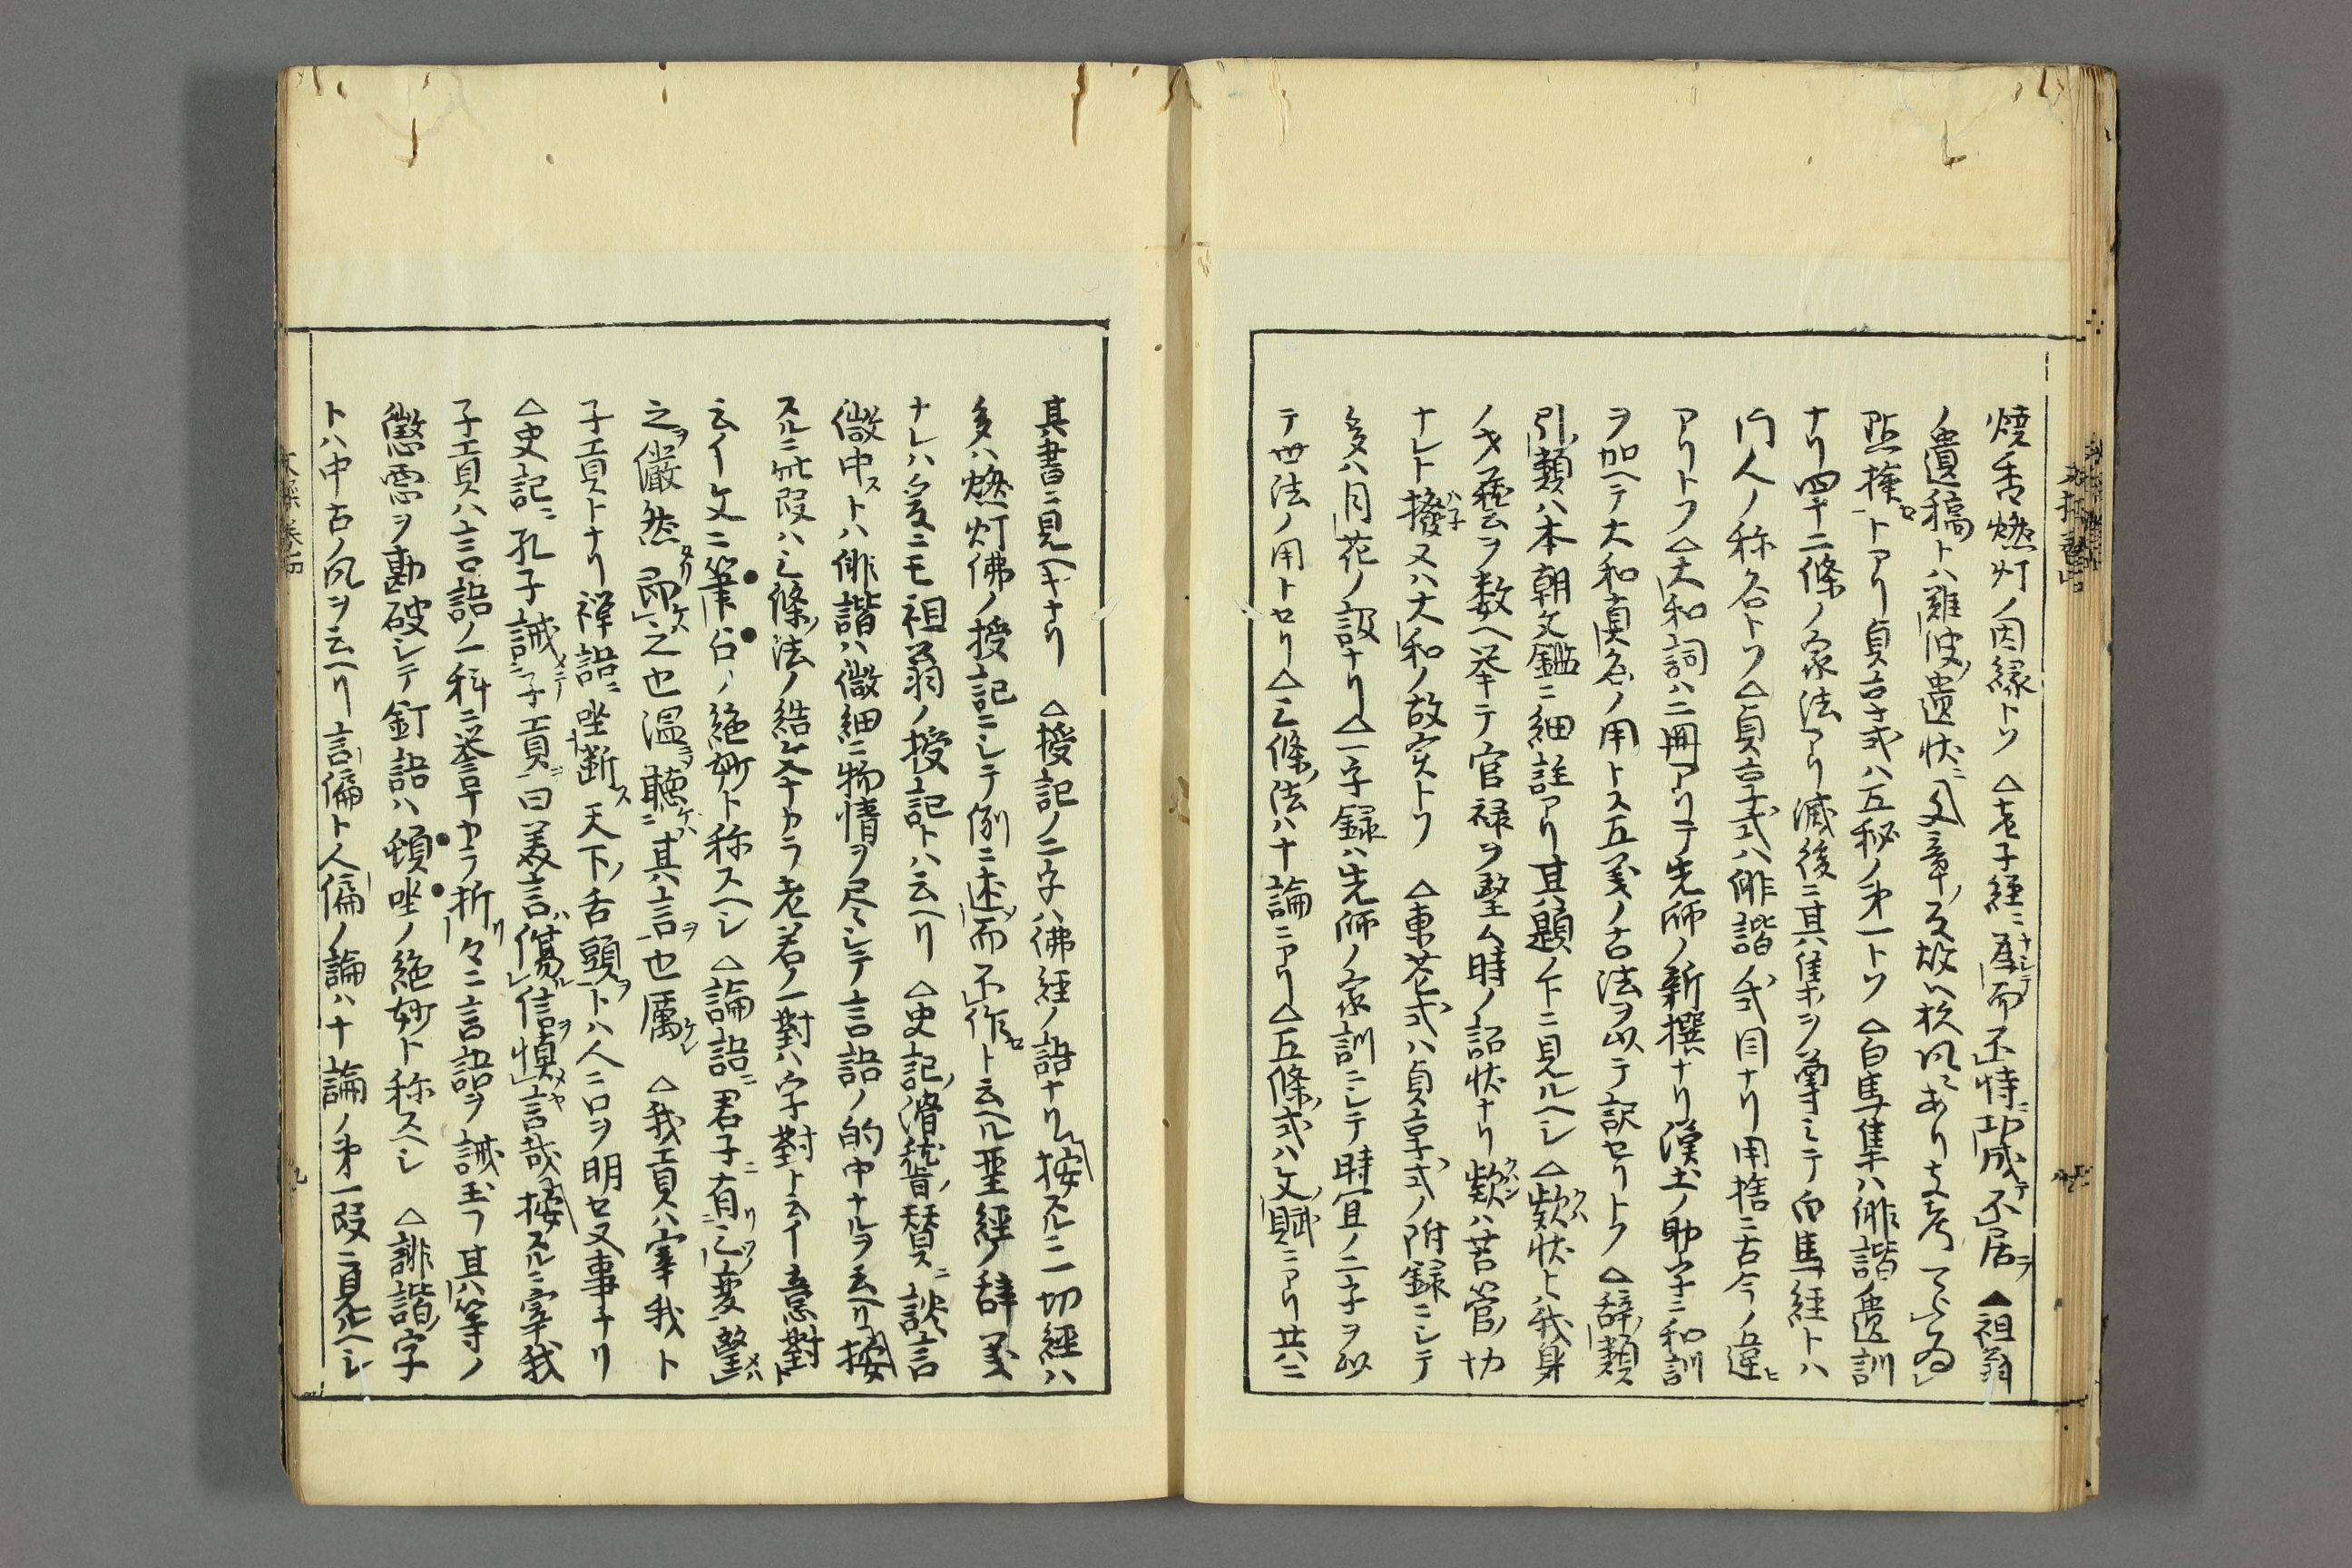 焼香燃灯ノ因縁トソ △老子經ニ為而不恃功成不居 ▲祖翁
ノ遺稿トハ難波ノ遺状ニ文章ノ
點捺トアリ貞享式ハ五秘ノ第一トソ △白馬集ハ俳諧ノ遺訓
ナリ四十二條ノ家法アリ滅後ニ其集ヲ尊ミテ白馬経トハ
門人ノ称名トソ △貞享式ハ俳諧ノ式目ナリ用捨ニ古今ノ違ヒ
アリトソ △大和詞ハ二冊アリテ先師ノ新撰ナリ漢土ノ助字ニ和訓
ヲ加ヘテ大和真名ノ用トス五義ノ古法ヲ以テ訳セリトソ △辞類
引類ハ本朝文鑑ニ細註アリ其題ノ下ニ見ルヘシ △歎状トハ我身
ノ才藝ヲ数ヘ挙テ官禄ヲ望ム時ノ詔状ナリ歎ハ苦管ノ切
ナレト撥又ハ大和ノ故実トソ △東花式ハ貞享式ノ附録ニシテ
多ハ月花ノ設ナリ △一字録ハ先師ノ家訓ニシテ時宜ノ二字ヲ以
テ世法ノ用トセリ △三條ノ法ハ十論ニアリ △五條ノ式ハ文ノ賦ニアリ共ニ
其書ニ見ヘキナリ △授記ノ二字ハ佛経ノ語ナリ按スルニ一切經ハ
多ハ燃灯佛ノ授記ニシテ例ニ述而不作ト云ヘル聖經ノ辞義
ナレハ爰ニモ祖翁ノ授記トハ云ヘリ △史記ノ滑稽ノ賛ニ談言
微中ストハ俳諧ハ微細ニ物情ヲ尽シテ言語ノ的中ナルヲ云ヘリ按
スルニ此段ハ三條ノ法ノ結文ナカラ老君ノ一對ハ字對ト云イ意對ト
云イ文ニ筆ハ台ノ絶妙ト称スヘシ △論語ニ君子有三変望
之儼然即之也温聴其言也厲 △我貢ハ宰我ト
子貢トナリ禅語ニ坐断ス天下ノ舌頭トハ人ニ口ヲ明セヌ事ナリ
△史記ニ孔子誡子貢曰美言傷信慎言哉按スルニ宰我
子貢ハ言語ノ一科ニ挙ナカラ折々ニ言語ヲ誡玉フ其等ノ
懲悪ヲ勘破シテ釘語ハ頓坐ノ絶妙ト称スヘシ △誹諧ノ字
トハ中古ノ風ヲ云ヘリ言偏ト人偏ノ論ハ十論ノ第一段ニ見ルヘシ